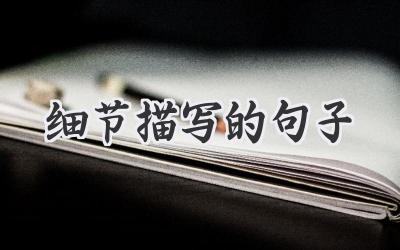 细节描写的句子